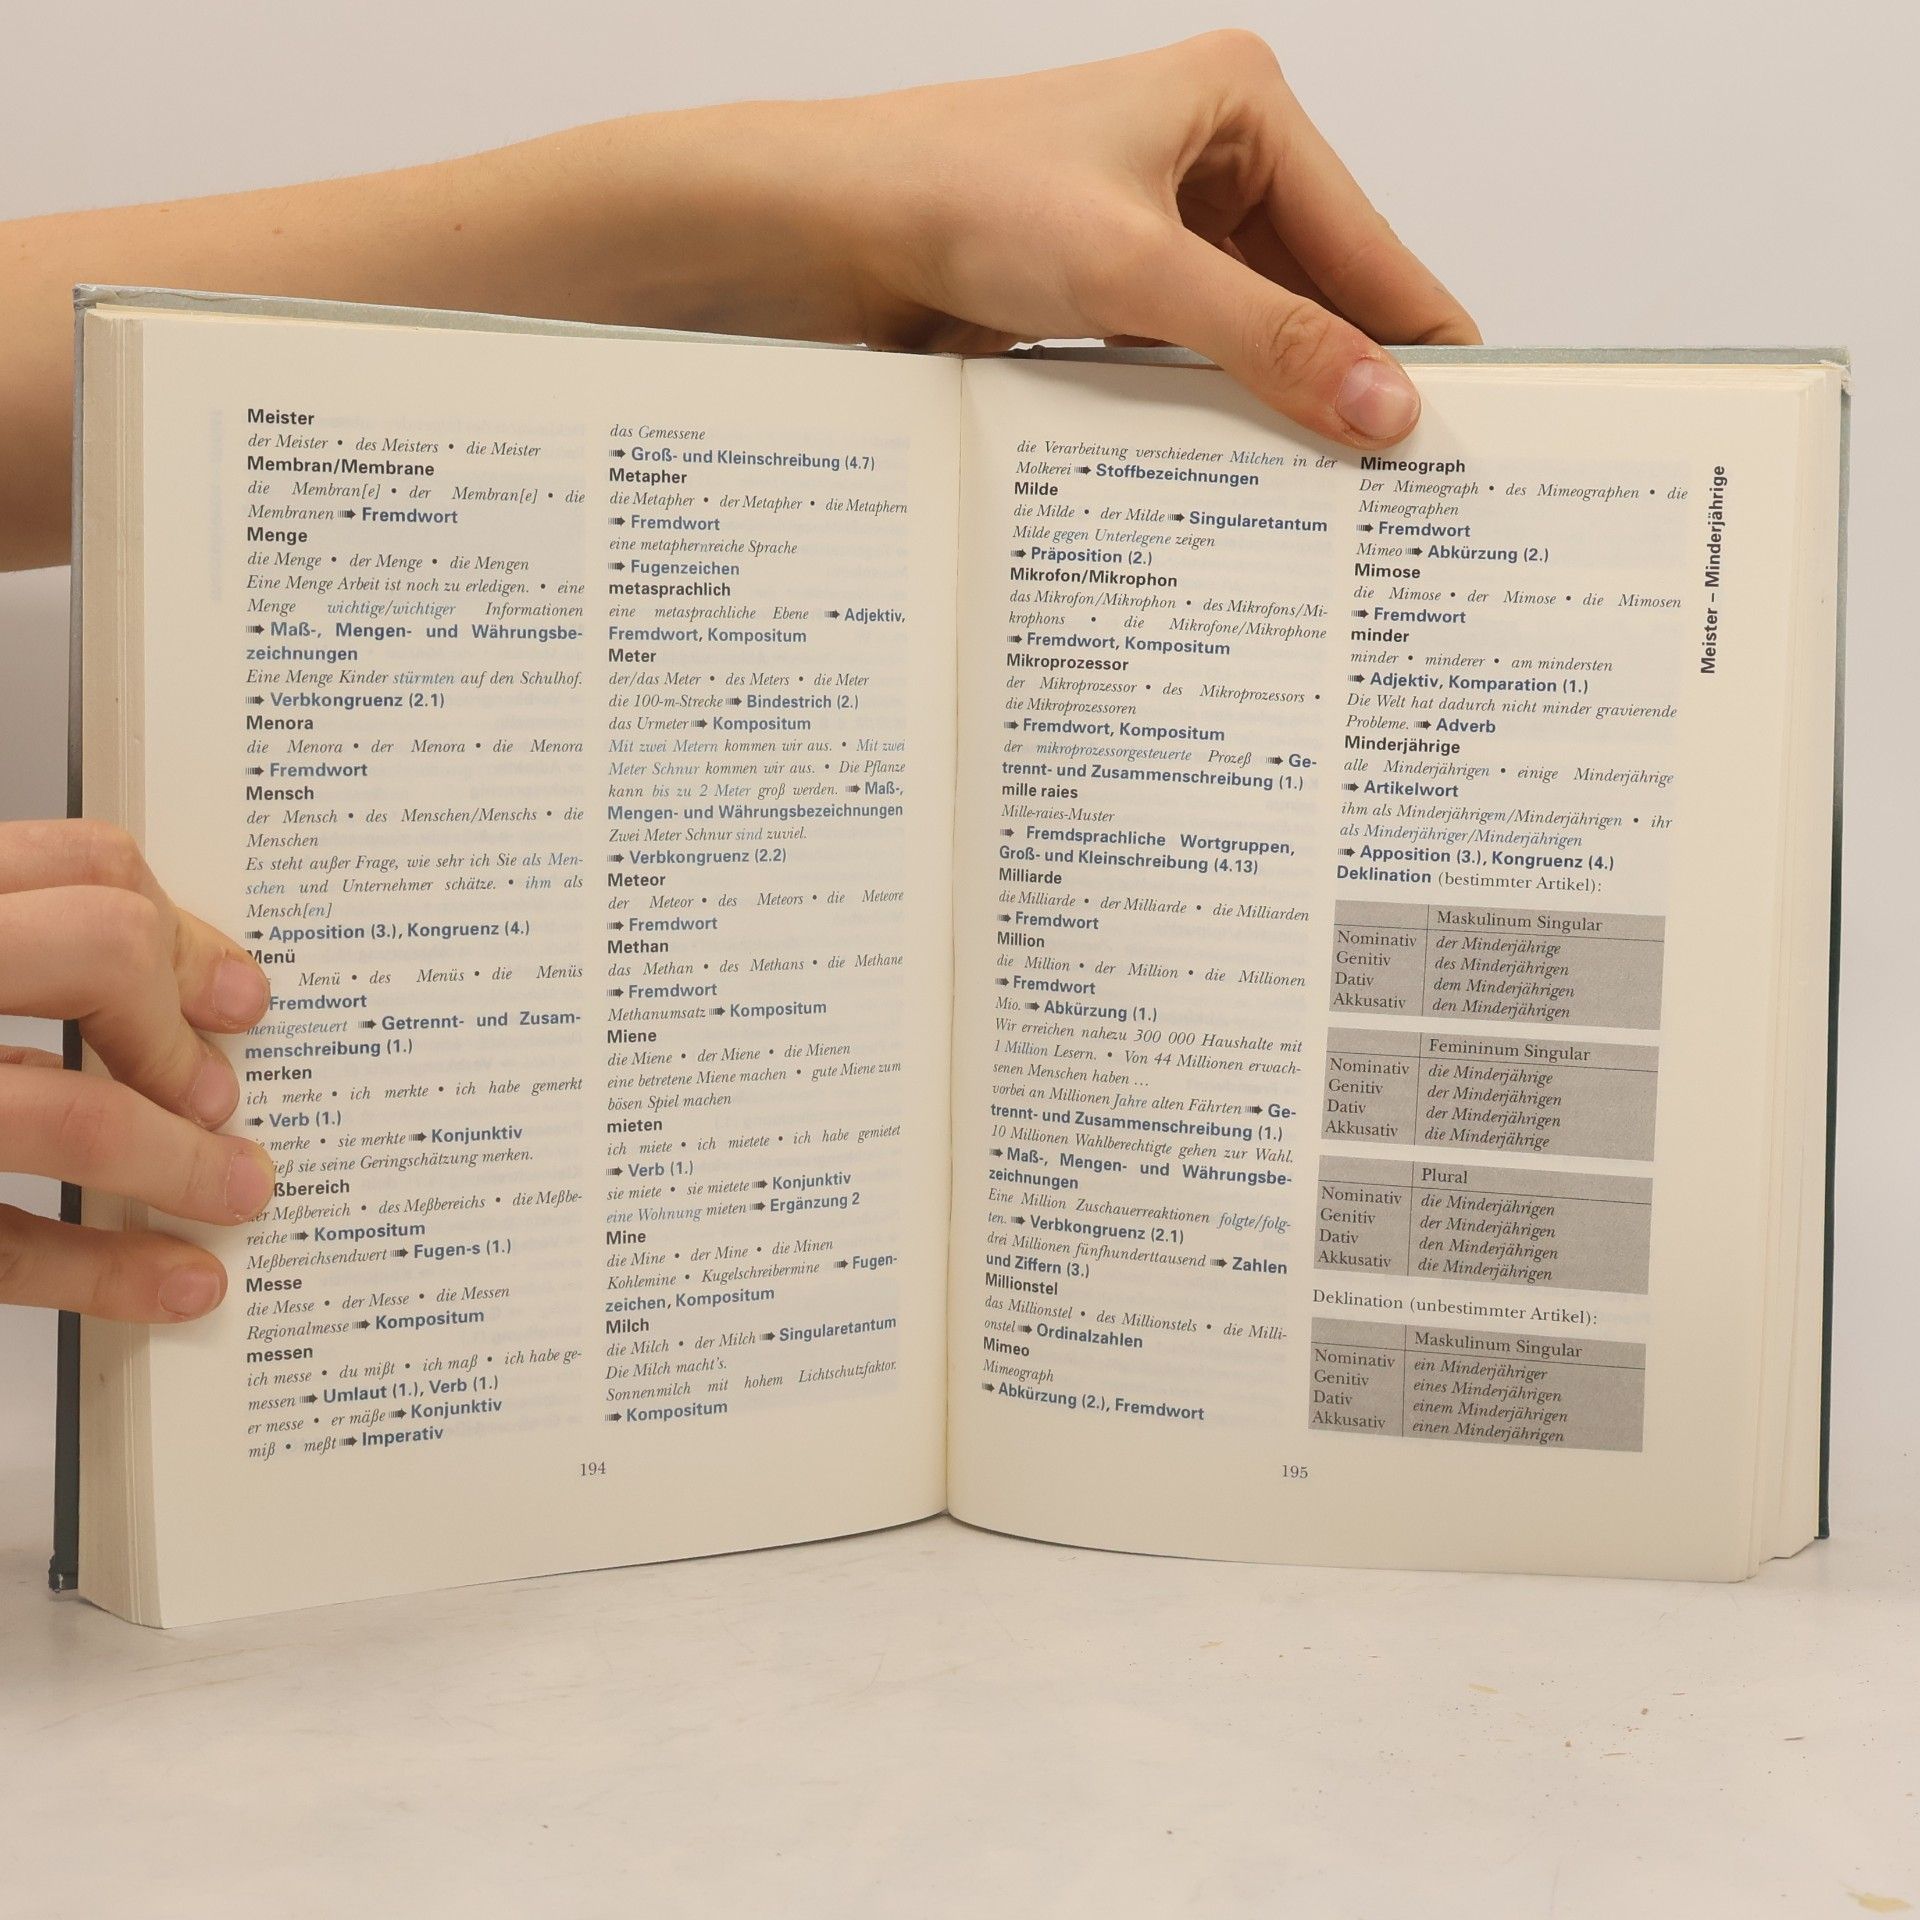 Meister
der Meister • des Meisters • die Meister
Membran/Membrane
die Membran[e] • der Membran[e] • die
Membranen ➠ Fremdwort
Menge
die Menge • der Menge • die Mengen
Eine Menge Arbeit ist noch zu erledigen. • eine
Menge wichtige/wichtiger Informationen
➠ Maß-, Mengen- und Währungsbe-
zeichnungen
Eine Menge Kinder stürmten auf den Schulhof.
➠ Verbkongruenz (2.1)
Menora
die Menora • der Menora • die Menora
➠ Fremdwort
Mensch
der Mensch • des Menschen/Menschs • die
Menschen
Es steht außer Frage, wie sehr ich Sie als Men-
schen und Unternehmer schätze. • ihm als
Mensch[en]
➠ Apposition (3.), Kongruenz (4.)
Menü
Menü • des Menüs • die Menüs
Fremdwort
menügesteuert ➠ Getrennt- und Zusam-
menschreibung (1.)
merken
ich merke • ich merkte • ich habe gemerkt
➠ Verb (1.)
merke • sie merkte ➠ Konjunktiv
sie seine Geringschätzung merken.
ßbereich
der Meßbereich • des Meßbereichs • die Meßbe-
reiche ➠ Kompositum
Meßbereichsendwert ➠ Fugen-s (1.)
Messe
die Messe • der Messe • die Messen
Regionalmesse ➠ Kompositum
messen
ich messe • du mißt • ich maß • ich habe ge-
messen ➠ Umlaut (1.), Verb (1.)
er messe • er mäße ➠ Konjunktiv
miß • meßt ➠ Imperativ
194
das Gemessene
➠ Groß- und Kleinschreibung (4.7)
Metapher
die Metapher • der Metapher • die Metaphern
➠ Fremdwort
eine metaphernreiche Sprache
➠ Fugenzeichen
metasprachlich
eine metasprachliche Ebene ➠ Adjektiv,
Fremdwort, Kompositum
Meter
der/das Meter • des Meters • die Meter
die 100-m-Strecke ➠ Bindestrich (2.)
das Urmeter ➠ Kompositum
Mit zwei Metern kommen wir aus. • Mit zwei
Meter Schnur kommen wir aus. • Die Pflanze
kann bis zu 2 Meter groß werden. ➠ Maß-,
Mengen- und Währungsbezeichnungen
Zwei Meter Schnur sind zuviel.
➠ Verbkongruenz (2.2)
Meteor
der Meteor • des Meteors • die Meteore
➠ Fremdwort
Methan
das Methan • des Methans • die Methane
➠ Fremdwort
Methanumsatz ➠ Kompositum
Miene
die Miene • der Miene • die Mienen
eine betretene Miene machen • gute Miene zum
bösen Spiel machen
mieten
ich miete • ich mietete • ich habe gemietet
➠ Verb (1.)
sie miete • sie mietete ➠ Konjunktiv
eine Wohnung mieten ➠ Ergänzung 2
Mine
die Mine • der Mine • die Minen
Kohlemine • Kugelschreibermine ➠ Fugen-
zeichen, Kompositum
Milch
die Milch • der Milch ➠ Singularetantum
Die Milch macht's.
Sonnenmilch mit hohem Lichtschutzfaktor.
➠ Kompositum
die Verarbeitung verschiedener Milchen in der
Molkerei ➠ Stoffbezeichnungen
Milde
die Milde • der Milde ➠ Singularetantum
Milde gegen Unterlegene zeigen
➠ Präposition (2.)
Mikrofon/Mikrophon
das Mikrofon/Mikrophon • des Mikrofons/Mi-
krophons • die Mikrofone/Mikrophone
➠ Fremdwort, Kompositum
Mikroprozessor
der Mikroprozessor • des Mikroprozessors •
die Mikroprozessoren
➠ Fremdwort, Kompositum
der mikroprozessorgesteuerte Prozeß ➠ Ge-
trennt- und Zusammenschreibung (1.)
mille raies
Mille-raies-Muster
➠ Fremdsprachliche Wortgruppen,
Groß- und Kleinschreibung (4.13)
Milliarde
die Milliarde • der Milliarde • die Milliarden
➠ Fremdwort
Million
die Million • der Million • die Millionen
➠ Fremdwort
Mio. ➠ Abkürzung (1.)
Wir erreichen nahezu 300 000 Haushalte mit
1 Million Lesern. • Von 44 Millionen erwach-
senen Menschen haben ...
vorbei an Millionen Jahre alten Fährten ➠ Ge-
trennt- und Zusammenschreibung (1.)
10 Millionen Wahlberechtigte gehen zur Wahl.
➠ Maß-, Mengen- und Währungsbe-
zeichnungen
Eine Million Zuschauerreaktionen folgte/folg-
ten. ➠ Verbkongruenz (2.1)
drei Millionen fünfhunderttausend ➠ Zahlen
und Ziffern (3.)
Millionstel
das Millionstel • des Millionstels • die Milli-
onstel ➠ Ordinalzahlen
Mimeo
Mimeograph
➠ Abkürzung (2.), Fremdwort
195
Mimeograph
Der Mimeograph • des Mimeographen • die
Mimeographen
➠ Fremdwort
Mimeo ➠ Abkürzung (2.)
Mimose
die Mimose • der Mimose • die Mimosen
➠ Fremdwort
minder
minder • minderer • am mindersten
➠ Adjektiv, Komparation (1.)
Die Welt hat dadurch nicht minder gravierende
Probleme. ➠ Adverb
Minderjährige
alle Minderjährigen • einige Minderjährige
➠ Artikelwort
ihm als Minderjährigem/Minderjährigen • ihr
als Minderjähriger/Minderjährigen
➠ Apposition (3.), Kongruenz (4.)
Deklination (bestimmter Artikel):
Maskulinum Singular
Nominativ der Minderjährige
Genitiv des Minderjährigen
Dativ dem Minderjährigen
Akkusativ den Minderjährigen
Femininum Singular
Nominativ die Minderjährige
Genitiv der Minderjährigen
Dativ der Minderjährigen
Akkusativ die Minderjährige
Plural
Nominativ die Minderjährigen
Genitiv der Minderjährigen
Dativ den Minderjährigen
Akkusativ die Minderjährigen
Deklination (unbestimmter Artikel):
Maskulinum Singular
Nominativ ein Minderjähriger
Genitiv eines Minderjährigen
Dativ einem Minderjährigen
Akkusativ einen Minderjährigen
Meister – Minderjährige